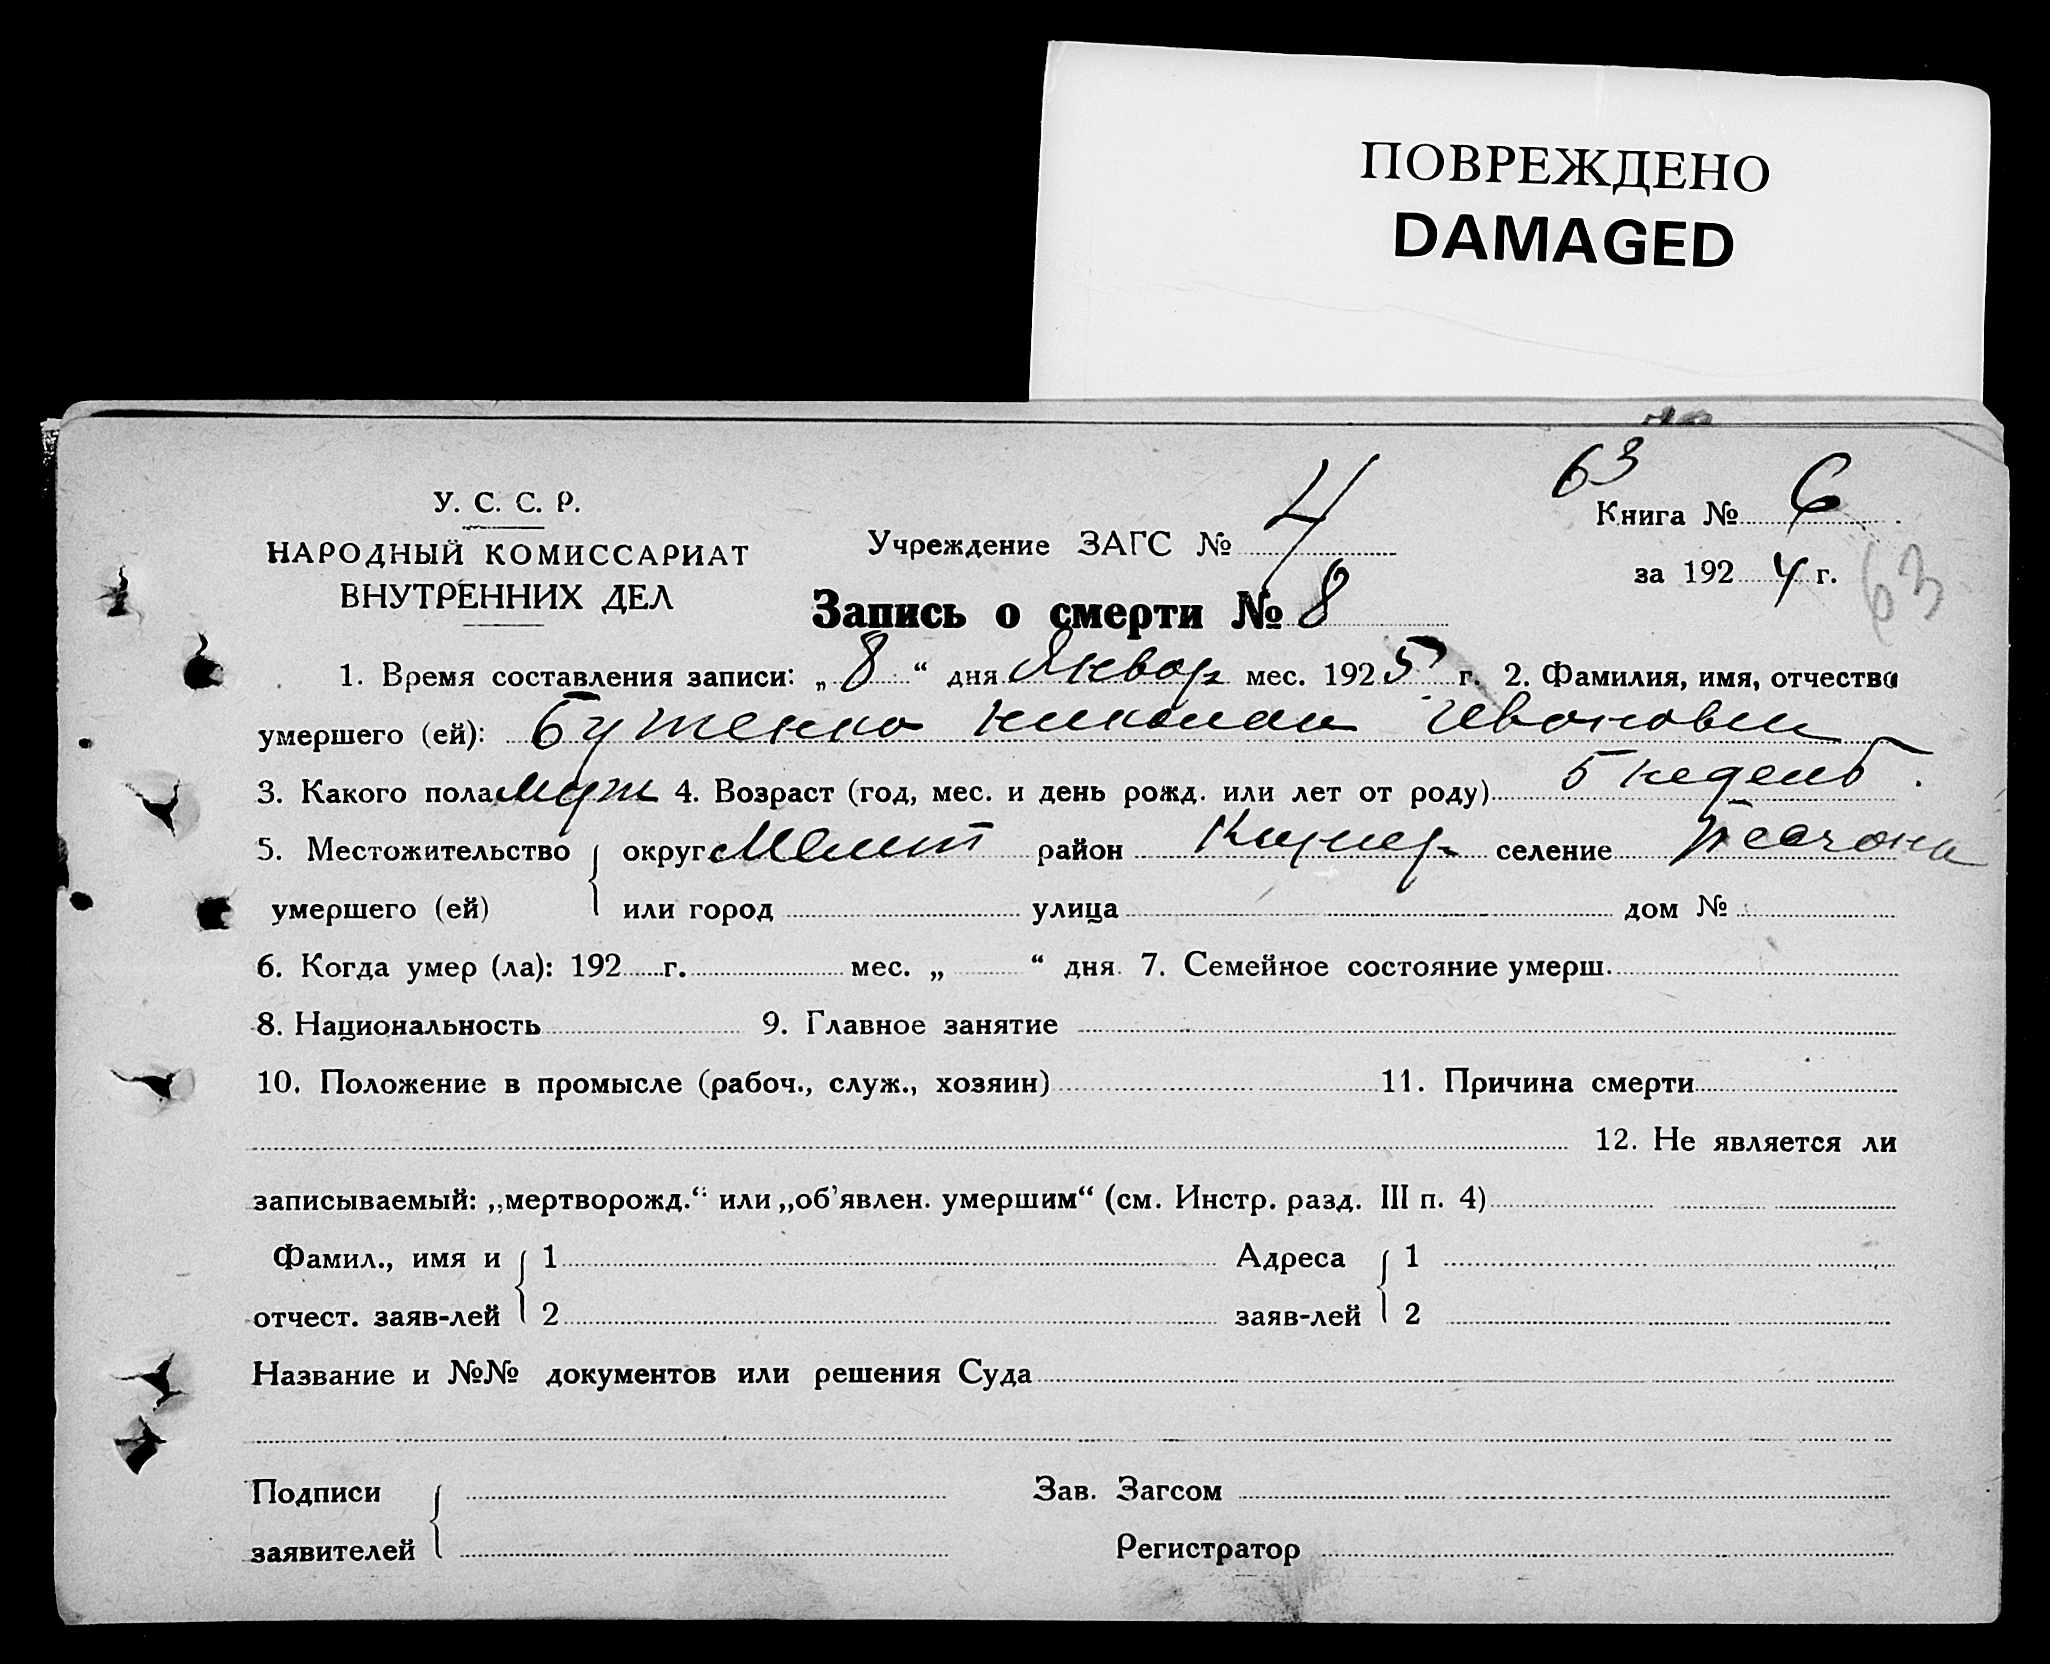 ПОВРЕЖДЕНО
DAMAGED
63
У. С. С. Р.
НАРОДНЫЙ КОМИССАРИАТ
ВНУТРЕННИХ ДЕЛ
Учреждение ЗАГС № 4
Книга № 6
за 1924 г.
63
Запись о смерти № 8
1. Время составления записи: „8“ дня Январ мес. 1925 г. 2. Фамилия, имя, отчество
умершего (ей): Бутенко Николай Иванович
3. Какого пола муж 4. Возраст (год, мес. и день рожд. или лет от роду) 5 недель.
5. Местожительство округ Мелит район селение
умершего (ей) или город улица дом №
6. Когда умер (ла): 192 г. мес. „ “ дня 7. Семейное состояние умерш.
8. Национальность 9. Главное занятие
10. Положение в промысле (рабоч., служ., хозяин) 11. Причина смерти
12. Не является ли
записываемый: „мертворожд.“ или „об'явлен. умершим“ (см. Инстр. разд. III п. 4)
Фамил., имя и 1 Адреса 1
отчест. заяв-лей 2 заяв-лей 2
Название и №№ документов или решения Суда
Подписи Зав. Загсом
заявителей Регистратор